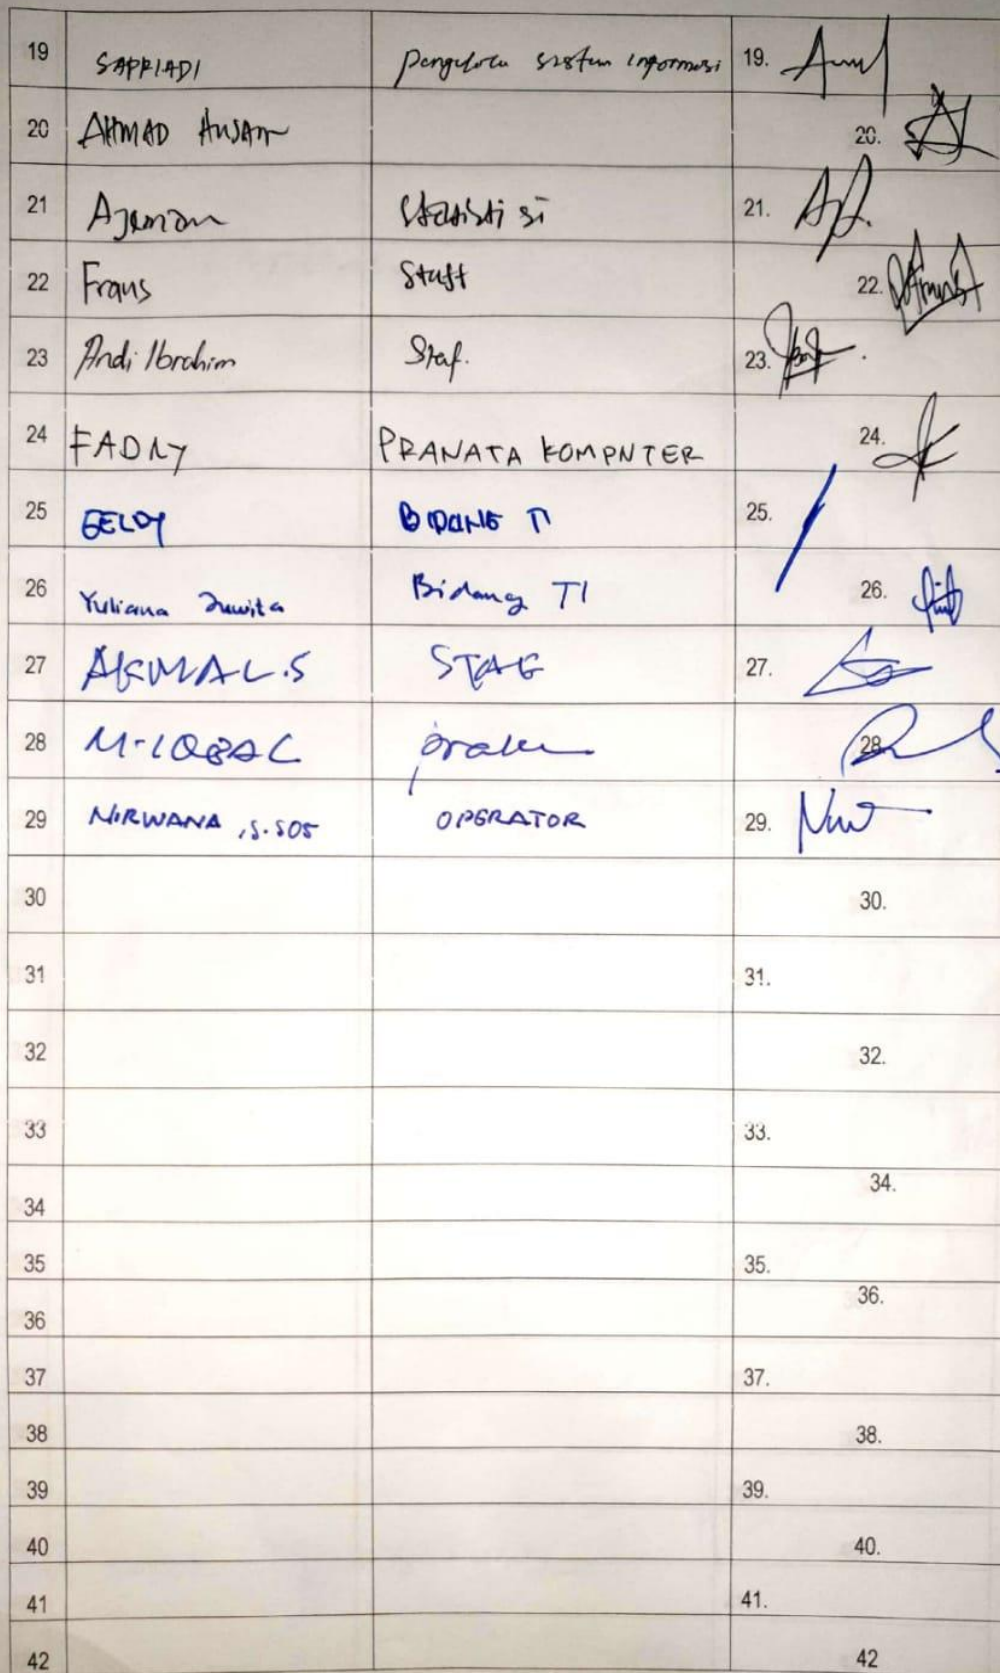 19 SAPRIADI Pengelola sistem informasi 19.
20 AHMAD AHSAN 20.
21 Ajeman Statisti si 21.
22 Frans Staff 22.
23 Andi Ibrahim Staf. 23.
24 FADLY PRANATA KOMPUTER 24.
25 BIDANG TI 25.
26 Yuliana Juwita Bidang TI 26.
27 AKMAL.S STAF 27.
28 M-IQBAL 28
29 NIRWANA ,S.SOS OPERATOR 29.
30 30.
31 31.
32 32.
33 33.
34 34.
35 35.
36 36.
37 37.
38 38.
39 39.
40 40.
41 41.
42 42